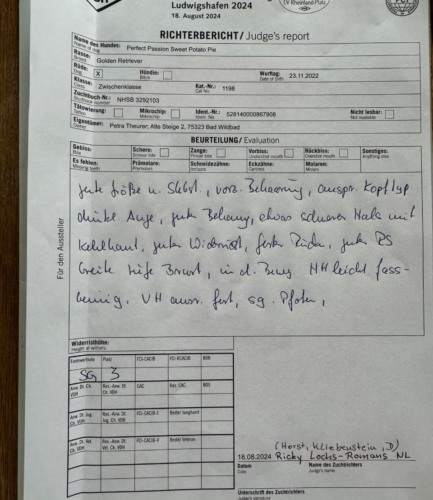 Ludwigshafen 2024
18. August 2024
LV Rheinland-Pfalz
RICHTERBERICHT/ Judge's report
Name des Hundes: Perfect Passion Sweet Potato Pie
Rasse: Golden Retriever
Rüde: X Hündin:
Bitch
Wurftag: 23.11.2022
Date of birth
Klasse: Zwischenklasse Kat.-Nr.: 1198
Cat. No.
Zuchtbuch-Nr.: NHSB 3292103
Tätowierung: Mikrochip: Ident.-Nr.: 528140000867908 Nicht lesbar:
Microchip Ident. No. Not readable
Eigentümer: Petra Theurer, Alte Steige 2, 75323 Bad Wildbad
BEURTEILUNG/ Evaluation
Gebiss: Schere: Zange: Vorbiss: Rückbiss: Sonstiges:
Bite Scissor bite Pincer bite Undershot mouth Overshot mouth Anything else
Es fehlen: Prämolare: Schneidezähne: Eckzähne: Molaren:
Missing teeth Premolars Incisors Canines Molars
Für den Aussteller
gute Größe u. , vorz. Behaarung, Kopftyp
dunkle Auge, gute Behang, etwas Hals mit
Kehlhaut, guter Widerrist, fester Rücken, gute
breite tiefe Brust, in d. Bew. HH leicht fass-
beinig, VH fest, sg. Pfoten,
Widerristhöhe:
Height at withers
Formwertnote Platz FCI-CACIB FCI-RCACIB BOB
SG 3
Anw. Dt. Ch. VDH Res.-Anw. Dt. Ch. VDH CAC Res. CAC BOS
Anw. Dt. Jug. Ch. VDH Res.-Anw. Dt. Jug. Ch. VDH FCI-CACIB-J Bester Junghund
Anw. Dt. Vet. Ch. VDH Res.-Anw. Dt. Vet. Ch. VDH FCI-CACIB-V Bester Veteran
(Horst, Kliebenstein, D)
18.08.2024 Ricky Lochs-Romans NL
Datum Name des Zuchtrichters
Date Judge's name
Unterschrift des Zuchtrichters
Judge's signature